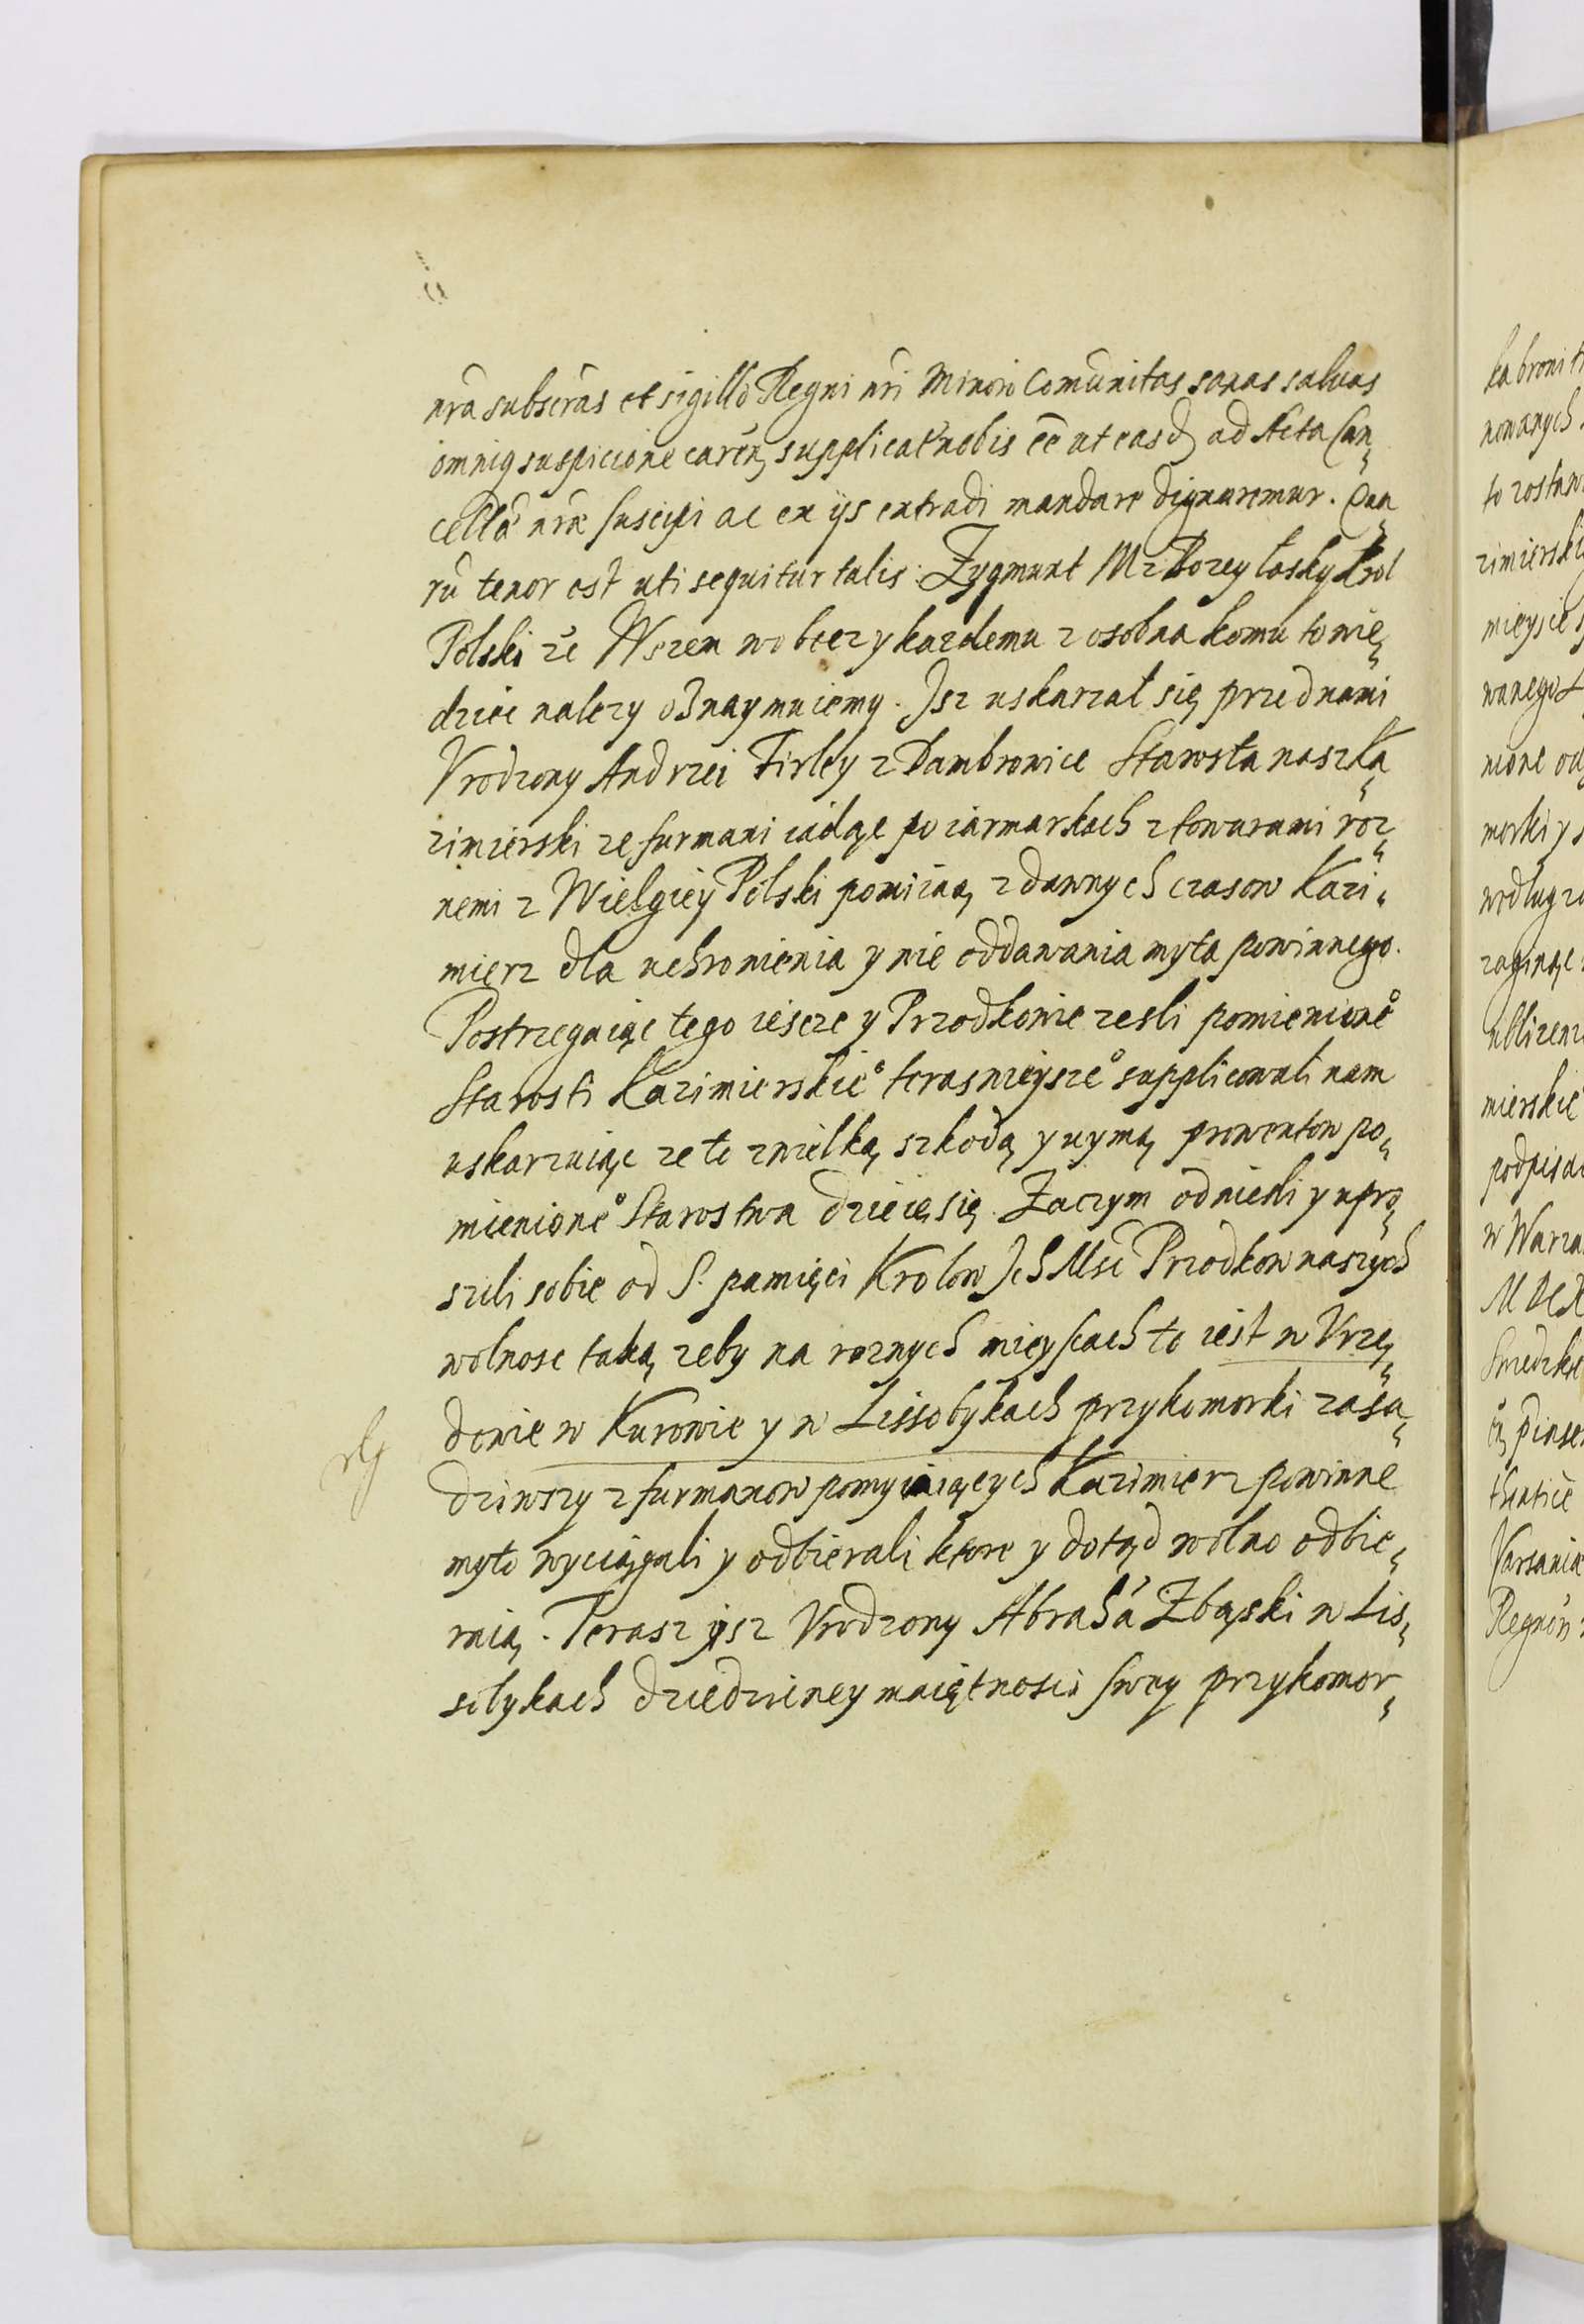 nrã subscras et sigillo Regni nri Minori Comunitas sanas saluas
omniq suspicione caren, supplicat nobis ee ut easd ad Acta Can„
cellã nræ suscipi ac ex ijs extradi mandare dignaremur. Qua„
rũ tenor est uti sequitur talis: Zygmunt III z Bozey łasky Krol
Polski etc Wszem wobec y kazdemu z osobna komu to wie„
dziec nalezy oznaymuiemy. Jsz uskarzał się przed nami
Vrodzony Andrzei Firley z Dambrowice Starosta nasz Ka„
zimierski ze furmani iadąc po iarmarkach z towarami roz„
nemi z Wielgiey Polski pomiiaią z dawnych czasow Kazi„
mierz dla uchronienia y nie oddawania myta powinnego.
Postrzegaiąc tego iescze y Przodkowie zesli pomienione°
Starosti Kazimierskie° terasnieysze° supplicowali nam
uskarzaiąc ze to z wielką szkodą y uymą prowentow po„
mienione° Starostwa dzieie się. Zaczym odniesli y upro„
szili sobie od S. pamięci Krolow Ich Msc Przodkow naszych
wolnosc taką zeby na roznych mieyscach to iest w Vrzę„
dowie w Kurowie y w Lissobykach przykomorki zasa„
dziwszy z furmanow pomyiaiących Kazimierz powinne
myto wyciągali y odbierali ktore y dotąd wolno odbie„
raią. Terasz ysz Vrodzony Abrahã Zbąski w Lis„
sobykach dziedziczney maiętnosci swey przykomor„
ka broni t
nowanych
to zostaw
zimierski
mieysce
wanego
nione od
morki y s
wedlug
zaginąc
ublizen
mierskie
podpisa
w Warza
M DCX
Szwedzkie
Varsaviæ
Regnor